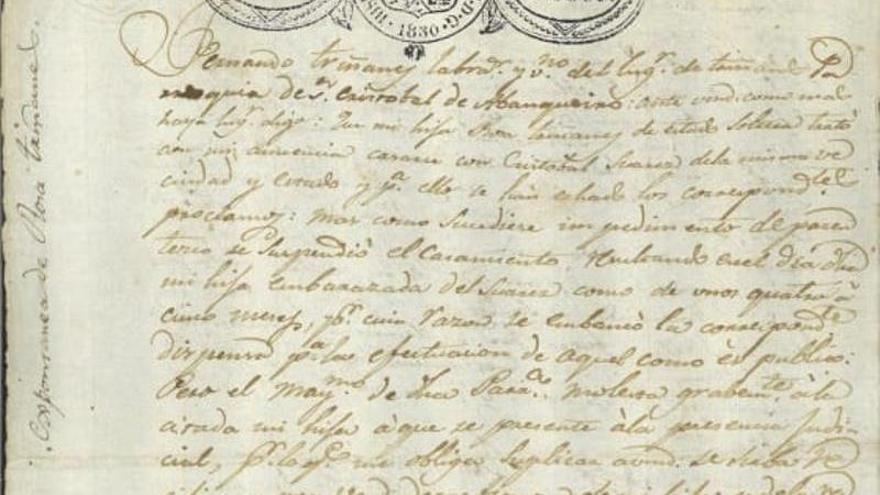 HISP
1830
D.G.
Fernando triñanes labrr. y vno. del lugr. de tamane Pa
rroquia de Sn. Cristobal de Abanqueiro: ante vmd. como mas
haya lugr. digo: Que mi hija Rosa tamanes de estado Soltera trató
con mi anuencia casarse con Cristobal Suarez de la misma ve
cindad y estado y pa. ello se han echado los correspondtes.
proclamos: mas como Sucediese impedimento de paren
tesco se Suspendió el Casamiento. Resultando en el dia dha
mi hija embarazada del Suarez como de unos quatro á
cinco meses, pr. cuia razon se embanco la correspondte
dispensa pa. la efectuacion de aquel como és publico:
Pero el maymo. de dha Parra. molesta grabemte. á la
citada mi hija á que se presente á la presencia Judi
cial, pr. lo qe. me obliga Suplicar á vmd. se sirba re
Espontanea de Rosa tamanes